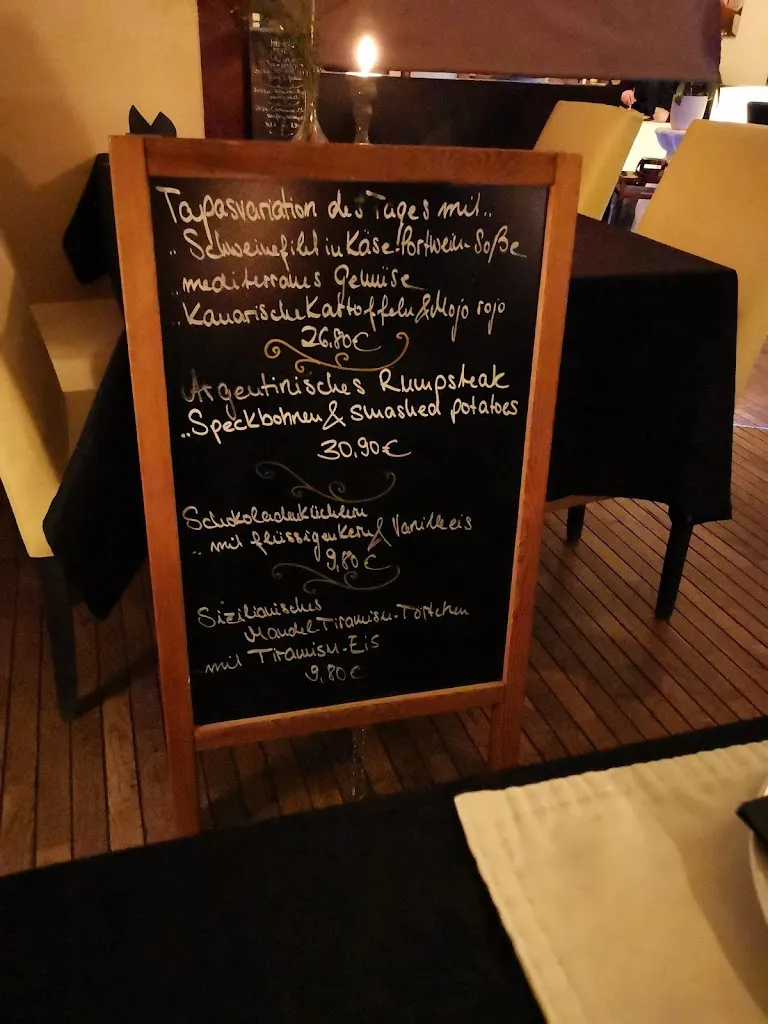 Tapasvariation des Tages mit..
.. Schweinefilet in Käse-Portwein-Soße
.. mediterranes Gemüse
.. Kanarische Kartoffeln & Mojo rojo
26.80€
Argentinisches Rumpsteak
.. Speckbohnen & smashed potatoes
30.90€
Schokoladenküchlein
.. mit flüssigen Kern & Vanilleeis
9,80€
Sizilianisches
Mandel Tiramisu-Törtchen
mit Tiramisu-Eis
9,80€